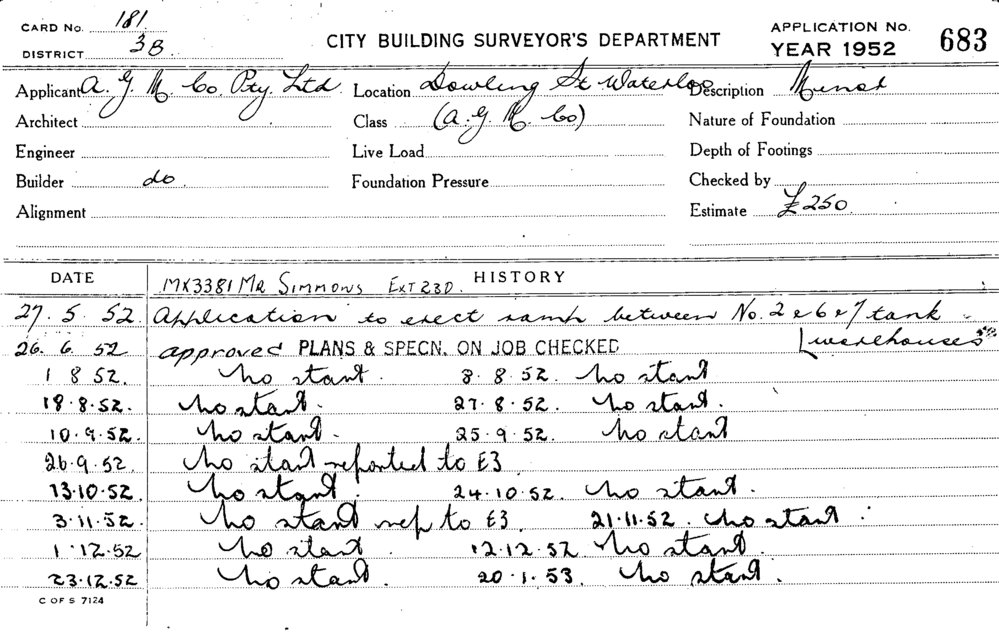 CARD No. 181
DISTRICT 3B
CITY BUILDING SURVEYOR'S DEPARTMENT
APPLICATION No.
YEAR 1952
683
Applicant A. G. M. Co. Pty. Ltd Location Dowling St Waterloo Description Minor
Architect Class (A. G. M. Co) Nature of Foundation
Engineer Live Load Depth of Footings
Builder do Foundation Pressure Checked by
Alignment Estimate £250
DATE HISTORY
MX3381 MR SIMMONS EXT 230.
27. 5. 52 Application to erect ramp between No. 2 & 6 & 7 tank
26. 6. 52 approved PLANS & SPECN. ON JOB CHECKED warehouses
1 8 52. No start. 8. 8. 52. No start
18. 8. 52. No start. 27. 8. 52. No start.
10. 9. 52. No start. 25. 9. 52. No start
26. 9. 52. No start reported to E3
13. 10. 52. No start. 24. 10. 52. No start.
3. 11. 52. No start rep to E3. 21. 11. 52. No start.
1. 12. 52 No start 12. 12. 52. No start.
23. 12. 52 No start. 20. 1. 53. No start.
C OF S 7124